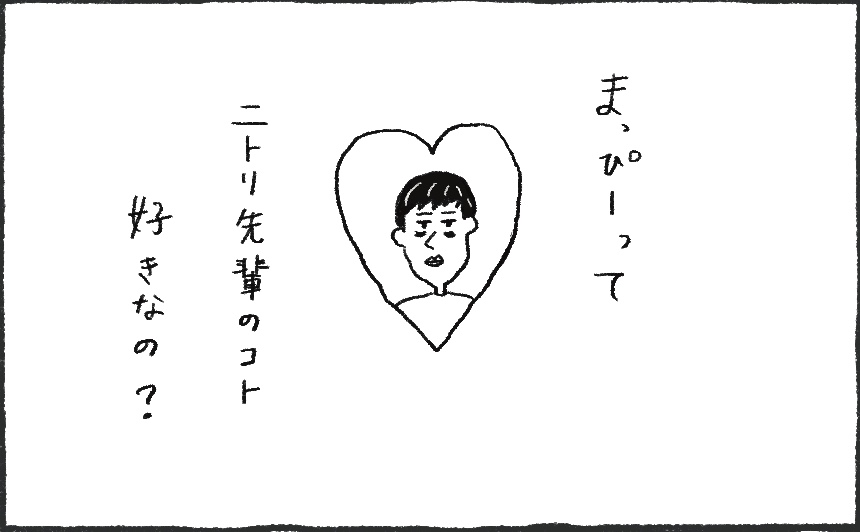 まっぴーって
ニトリ先輩のコト
好きなの?